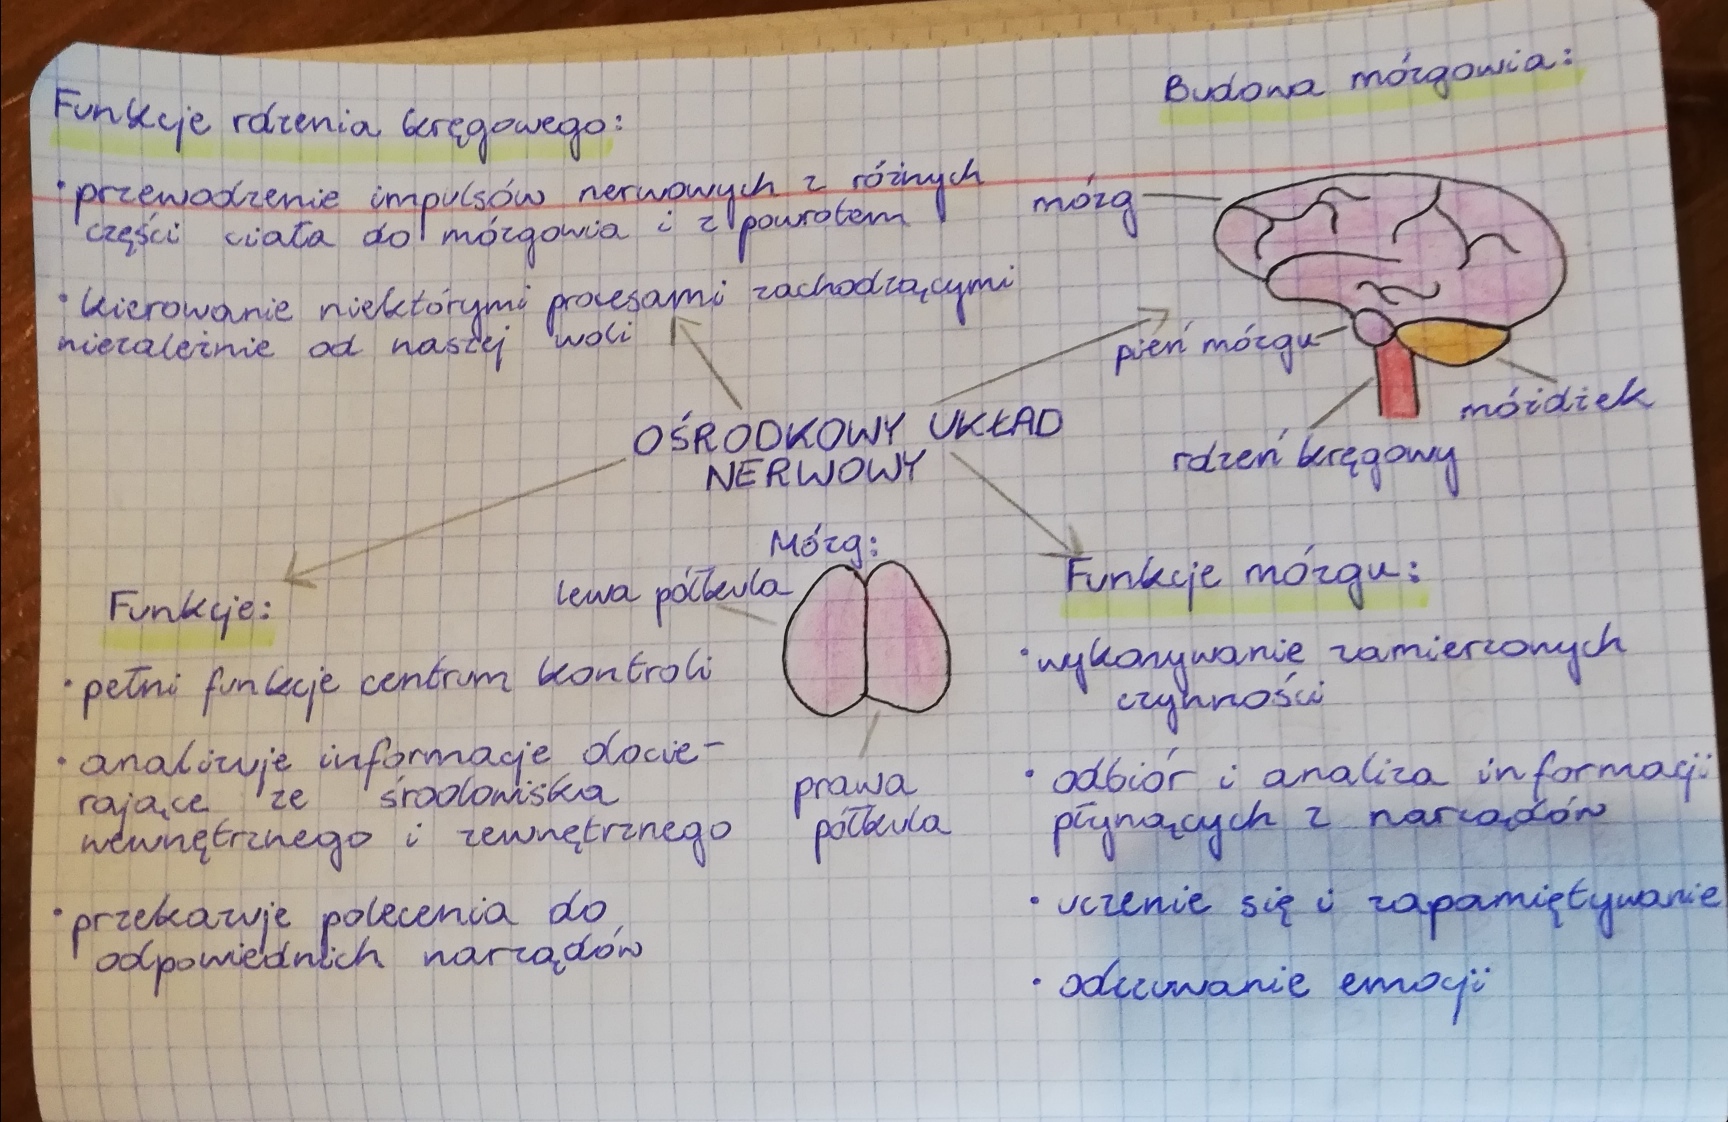 Funkcje rdzenia kręgowego:
• przewodzenie impulsów nerwowych z różnych
części ciała do mózgowia i z powrotem
• kierowanie niektórymi procesami zachodzącymi
niezależnie od naszej woli
Budowa mózgowia:
mózg
pień mózgu
móżdżek
rdzeń kręgowy
OŚRODKOWY UKŁAD
NERWOWY
Funkcje:
• pełni funkcje centrum kontroli
• analizuje informacje docie-
rające ze środowiska
wewnętrznego i zewnętrznego
• przekazuje polecenia do
odpowiednich narządów
Mózg:
lewa półkula
prawa
półkula
Funkcje mózgu:
• wykonywanie zamierzonych
czynności
• odbiór i analiza informacji
płynących z narządów
• uczenie się i zapamiętywanie
• odczuwanie emocji